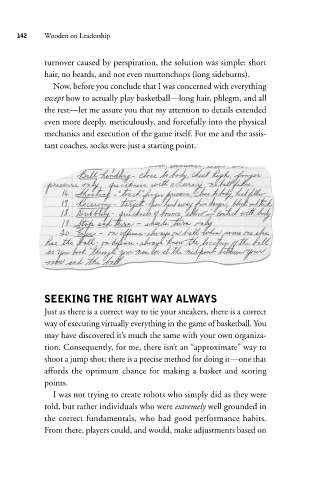 142 Wooden on Leadership
turnover caused by perspiration, the solution was simple: short
hair, no beards, and not even muttonchops (long sideburns).
Now, before you conclude that I was concerned with everything
except how to actually play basketball—long hair, phlegm, and all
the rest—let me assure you that my attention to details extended
even more deeply, meticulously, and forcefully into the physical
mechanics and execution of the game itself. For me and the assis-
tant coaches, socks were just a starting point.
Ball handling - close to body, chest high, finger
pressure only, quickness with accuracy
16.
17. Receiving - target
18. Dribbling -
19. Stop and turn - turn only
20. - on offense always on ball when some one else
has the ball, on defense - always know the location of the ball
as you look through your man
and the ball
SEEKING THE RIGHT WAY ALWAYS
Just as there is a correct way to tie your sneakers, there is a correct
way of executing virtually everything in the game of basketball. You
may have discovered it's much the same with your own organiza-
tion. Consequently, for me, there isn't an "approximate" way to
shoot a jump shot; there is a precise method for doing it—one that
affords the optimum chance for making a basket and scoring
points.
I was not trying to create robots who simply did as they were
told, but rather individuals who were extremely well grounded in
the correct fundamentals, who had good performance habits.
From there, players could, and would, make adjustments based on